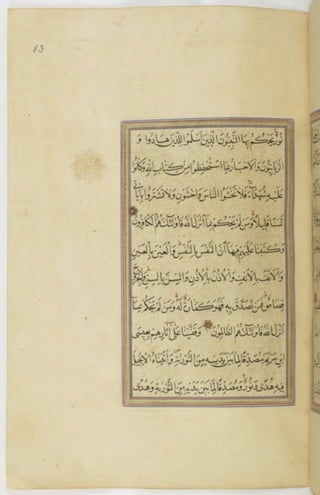 83
نُورٌ يَحْكُمُ بِهَا النَّبِيُّونَ الَّذِينَ أَسْلَمُوا لِلَّذِينَ هَادُوا وَ
الرَّبَّانِيُّونَ وَالْأَحْبَارُ بِمَا اسْتُحْفِظُوا مِنْ كِتَابِ اللَّهِ وَكَانُوا
عَلَيْهِ شُهَدَاءَ فَلَا تَخْشَوُا النَّاسَ وَاخْشَوْنِ وَلَا تَشْتَرُوا بِآيَاتِي
ثَمَنًا قَلِيلًا وَمَنْ لَمْ يَحْكُمْ بِمَا أَنْزَلَ اللَّهُ فَأُولَئِكَ هُمُ الْكَافِرُونَ
وَكَتَبْنَا عَلَيْهِمْ فِيهَا أَنَّ النَّفْسَ بِالنَّفْسِ وَالْعَيْنَ بِالْعَيْنِ
وَالْأَنْفَ بِالْأَنْفِ وَالْأُذُنَ بِالْأُذُنِ وَالسِّنَّ بِالسِّنِّ وَالْجُرُوحَ
قِصَاصٌ فَمَنْ تَصَدَّقَ بِهِ فَهُوَ كَفَّارَةٌ لَهُ وَمَنْ لَمْ يَحْكُمْ بِمَا
أَنْزَلَ اللَّهُ فَأُولَئِكَ هُمُ الظَّالِمُونَ وَقَفَّيْنَا عَلَى آثَارِهِمْ بِعِيسَى
ابْنِ مَرْيَمَ مُصَدِّقًا لِمَا بَيْنَ يَدَيْهِ مِنَ التَّوْرَيةِ وَآتَيْنَاهُ الْإِنْجِيلَ
فِيهِ هُدًى وَنُورٌ وَمُصَدِّقًا لِمَا بَيْنَ يَدَيْهِ مِنَ التَّوْرَيةِ وَهُدًى